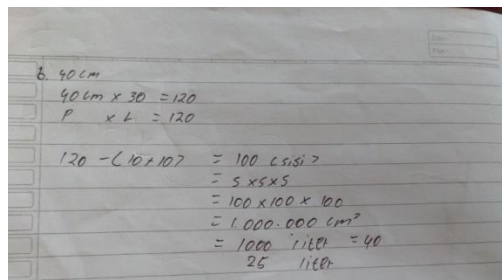 6. 40 cm
40 cm x 30 = 120
P x L = 120
120 - (10 + 10) = 100 (sisi)
= 5 x 5 x 5
= 100 x 100 x 100
= 1.000.000 cm³
= 1000 liter = 40
25 liter